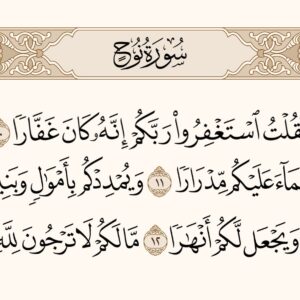 سُورَةُ نُوحٍ
فَقُلْتُ ٱسْتَغْفِرُوا۟ رَبَّكُمْ إِنَّهُۥ كَانَ غَفَّارًا
عَلَيْكُم مِّدْرَارًا ١١ وَيُمْدِدْكُم بِأَمْوَٰلٍ
وَيَجْعَل لَّكُمْ أَنْهَٰرًا ١٢ مَّا لَكُمْ لَا تَرْجُونَ لِلَّهِ